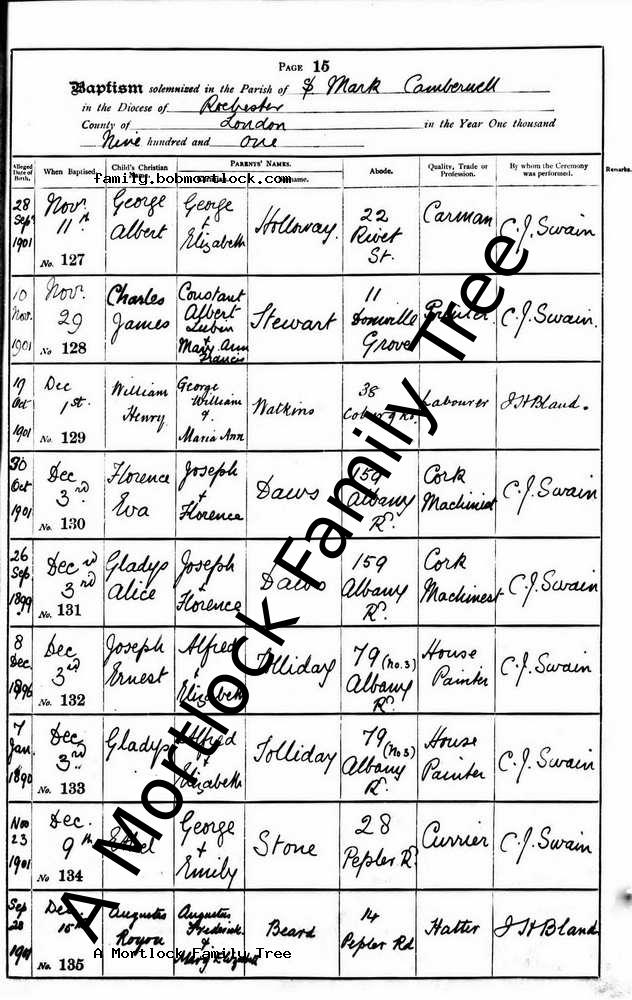 PAGE 15
Baptism solemnized in the Parish of St Mark Camberwell
in the Diocese of Rochester
County of London in the Year One thousand
Nine hundred and one
Alleged Date of Birth. When Baptised. Child's Christian PARENTS' NAMES. Abode. Quality, Trade or Profession. By whom the Ceremony was performed. Remarks.
family.bobmortlock.com
28 Sep 1901 Nov. 11th No. 127 George Albert George + Elizabeth Holloway. 22 Rivet St. Carman C. J. Swain
10 Nov. 1901 Nov. 29 No 128 Charles James Constant Albert Lubin + Mary Ann Francis Stewart 11 Domville Grove C. J. Swain.
Oct 1901 Dec 1st. No. 129 William Henry George William & Maria Ann Watkins 38 Coburg Rd. Labourer J H Bland.
30 Oct 1901 Dec 3rd No. 130 Florence Eva Joseph + Florence Daws 159 Albany Rd. Cork Machinist C. J. Swain
26 Sep. 1899 Dec 3rd No. 131 Gladys Alice Joseph + Florence Daws 159 Albany Rd. Cork Machinest C. J. Swain
8 Dec. 1896 Dec 3rd No. 132 Joseph Ernest Alfred + Elizabeth Tolliday 79 (No. 3) Albany Rd. House Painter C. J. Swain
7 Jan. 1890 Dec. 3rd No. 133 Gladys Alfred + Elizabeth Tolliday 79 (No 3) Albany Rd. House Painter C. J. Swain
Nov 23 1901 Dec. 9th No 134 Ethel George + Emily Stone 28 Pepler Rd. Currier C. J. Swain
Sep 28 1901 Dec. 15th No. 135 Augustus Augustus Frederick & Mary Elizabeth Beard 14 Pepler Rd Hatter J H Bland
A Mortlock Family Tree
A Mortlock Family Tree